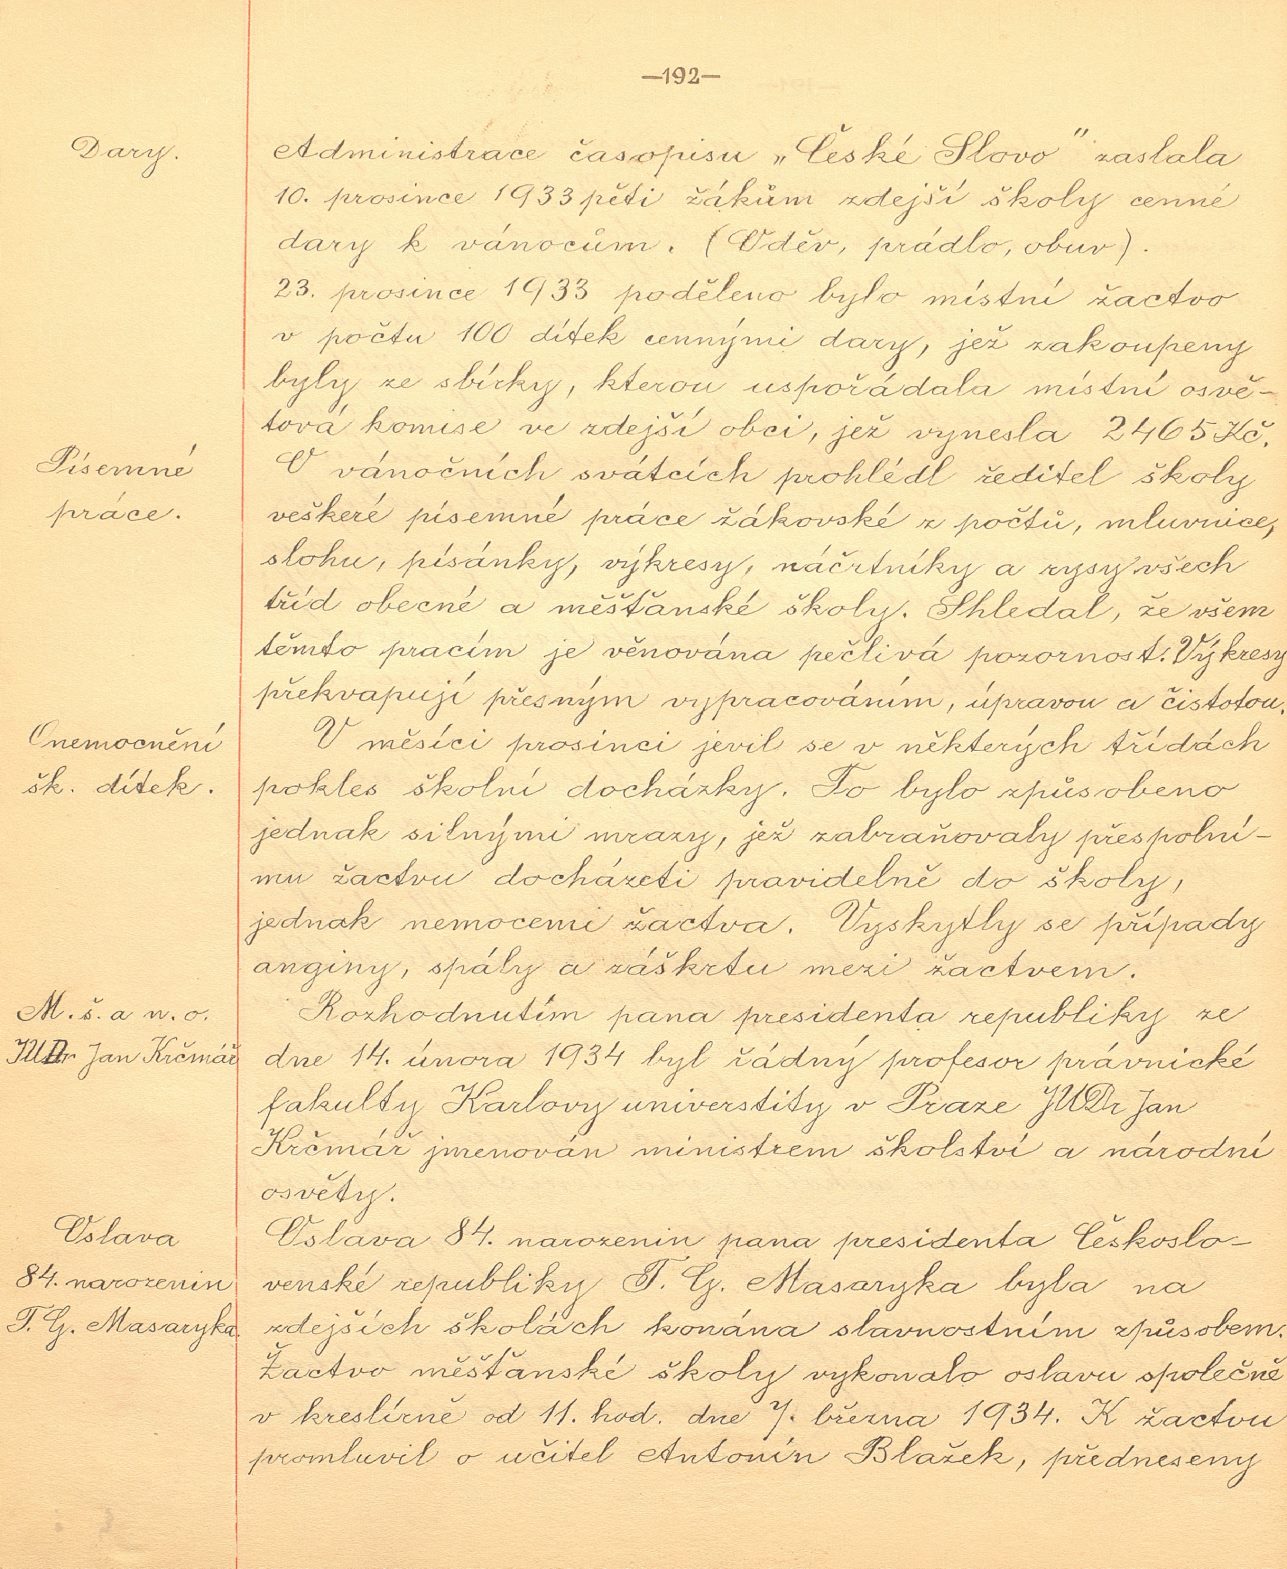 —192—
Dary.
Administrace časopisu „České Slovo" zaslala
10. prosince 1933 pěti žákům zdejší školy cenné
dary k vánocům. (Oděv, prádlo, obuv).
23. prosince 1933 poděleno bylo místní žactvo
v počtu 100 dítek cennými dary, jež zakoupeny
byly ze sbírky, kterou uspořádala místní osvě-
tová komise ve zdejší obci, jež vynesla 2465 Kč.
Písemné
práce.
O vánočních svátcích prohlédl ředitel školy
veškeré písemné práce žákovské z počtů, mluvnice,
slohu, písánky, výkresy, náčrtníky a rysy všech
tříd obecné a měšťanské školy. Shledal, že všem
těmto pracím je věnována pečlivá pozornost. Výkresy
překvapují přesným vypracováním, úpravou a čistotou.
Onemocnění
šk. dítek.
V měsíci prosinci jevil se v některých třídách
pokles školní docházky. To bylo způsobeno
jednak silnými mrazy, jež zabraňovaly přespolní-
mu žactvu docházeti pravidelně do školy,
jednak nemocemi žactva. Vyskytly se případy
anginy, spály a záškrtu mezi žactvem.
M. š. a n. o.
JUDr Jan Krčmář
Rozhodnutím pana presidenta republiky ze
dne 14. února 1934 byl řádný profesor právnické
fakulty Karlovy universtity v Praze JUDr Jan
Krčmář jmenován ministrem školství a národní
osvěty.
Oslava
84. narozenin
T. G. Masaryka.
Oslava 84. narozenin pana presidenta Českoslo-
venské republiky T. G. Masaryka byla na
zdejších školách konána slavnostním způsobem.
Žactvo měšťanské školy vykonalo oslavu společně
v kreslírně od 11. hod. dne 7. března 1934. K žactvu
promluvil o učitel Antonín Blažek, předneseny